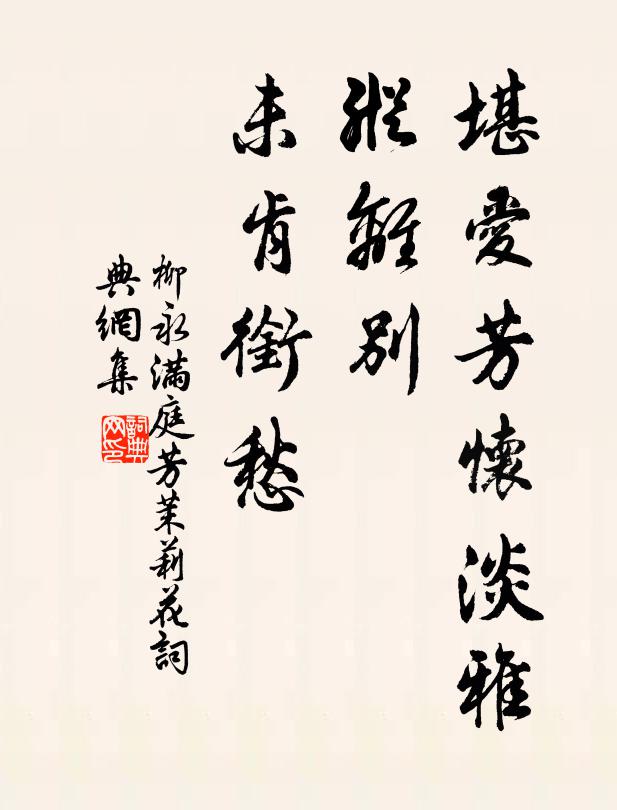 堪愛芳懷淡雅
縱離別
未肯銜愁
柳永滿庭芳茉莉花詞
典網集
詞典
网印